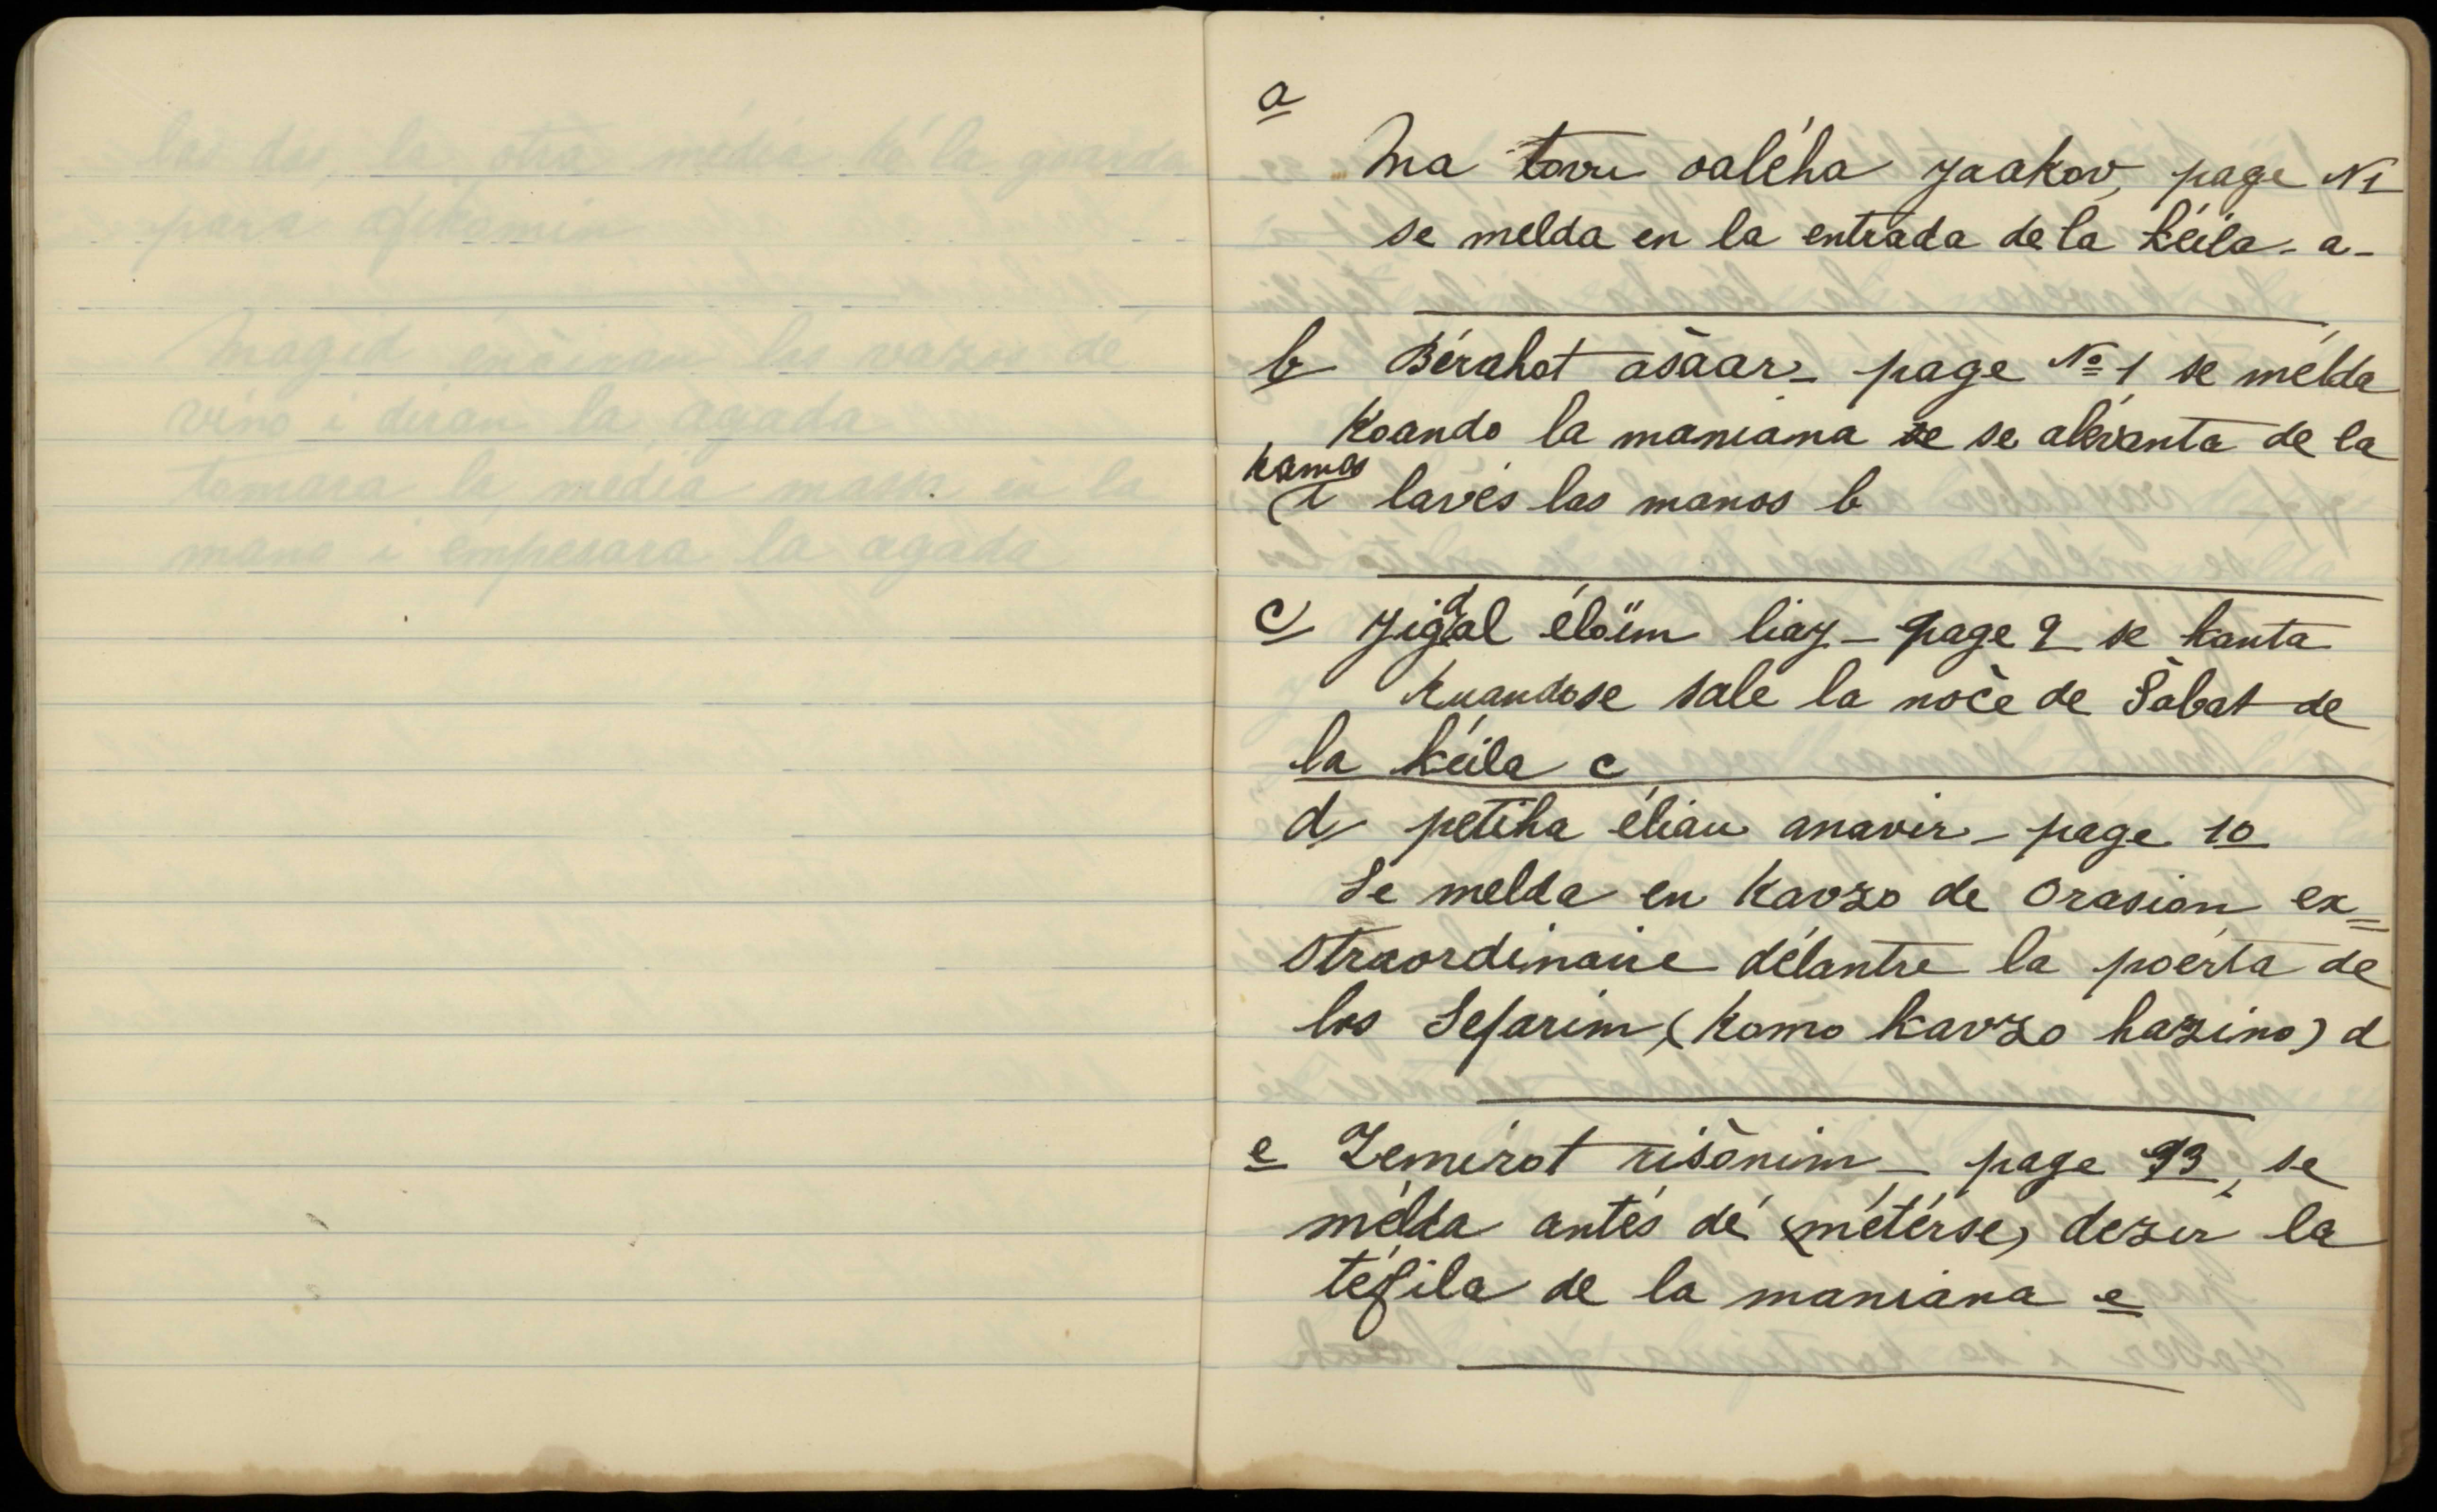 las dos, la otra média ké la guarda
para afikomin
Magid enčiran los vazos de
vino i diran la agada
tomara la média massa en la
mano i empesara la agada
a
Ma tovu oaléha yaakov, page N1
se melda en la entrada de la kéila - a -
b Bérahot ašaar - page Nº 1 se mélda
koando la maniana se se alévanta de la
kamas
(i lavés las manos b
c Yigdal éloïm liay - page 2 se kanta
kuandose sale la noče de Šabat de
la kéila c
d petiha éliau anavir - page 10
Se melda en kavzo de orasion ex=
straordinaire délantre la poérta de
los Sefarim (komo kavzo hazino) d
e Zemirot rišonim - page 93, se
mélda antés dé (métérse) dezir la
téfila de la maniana e